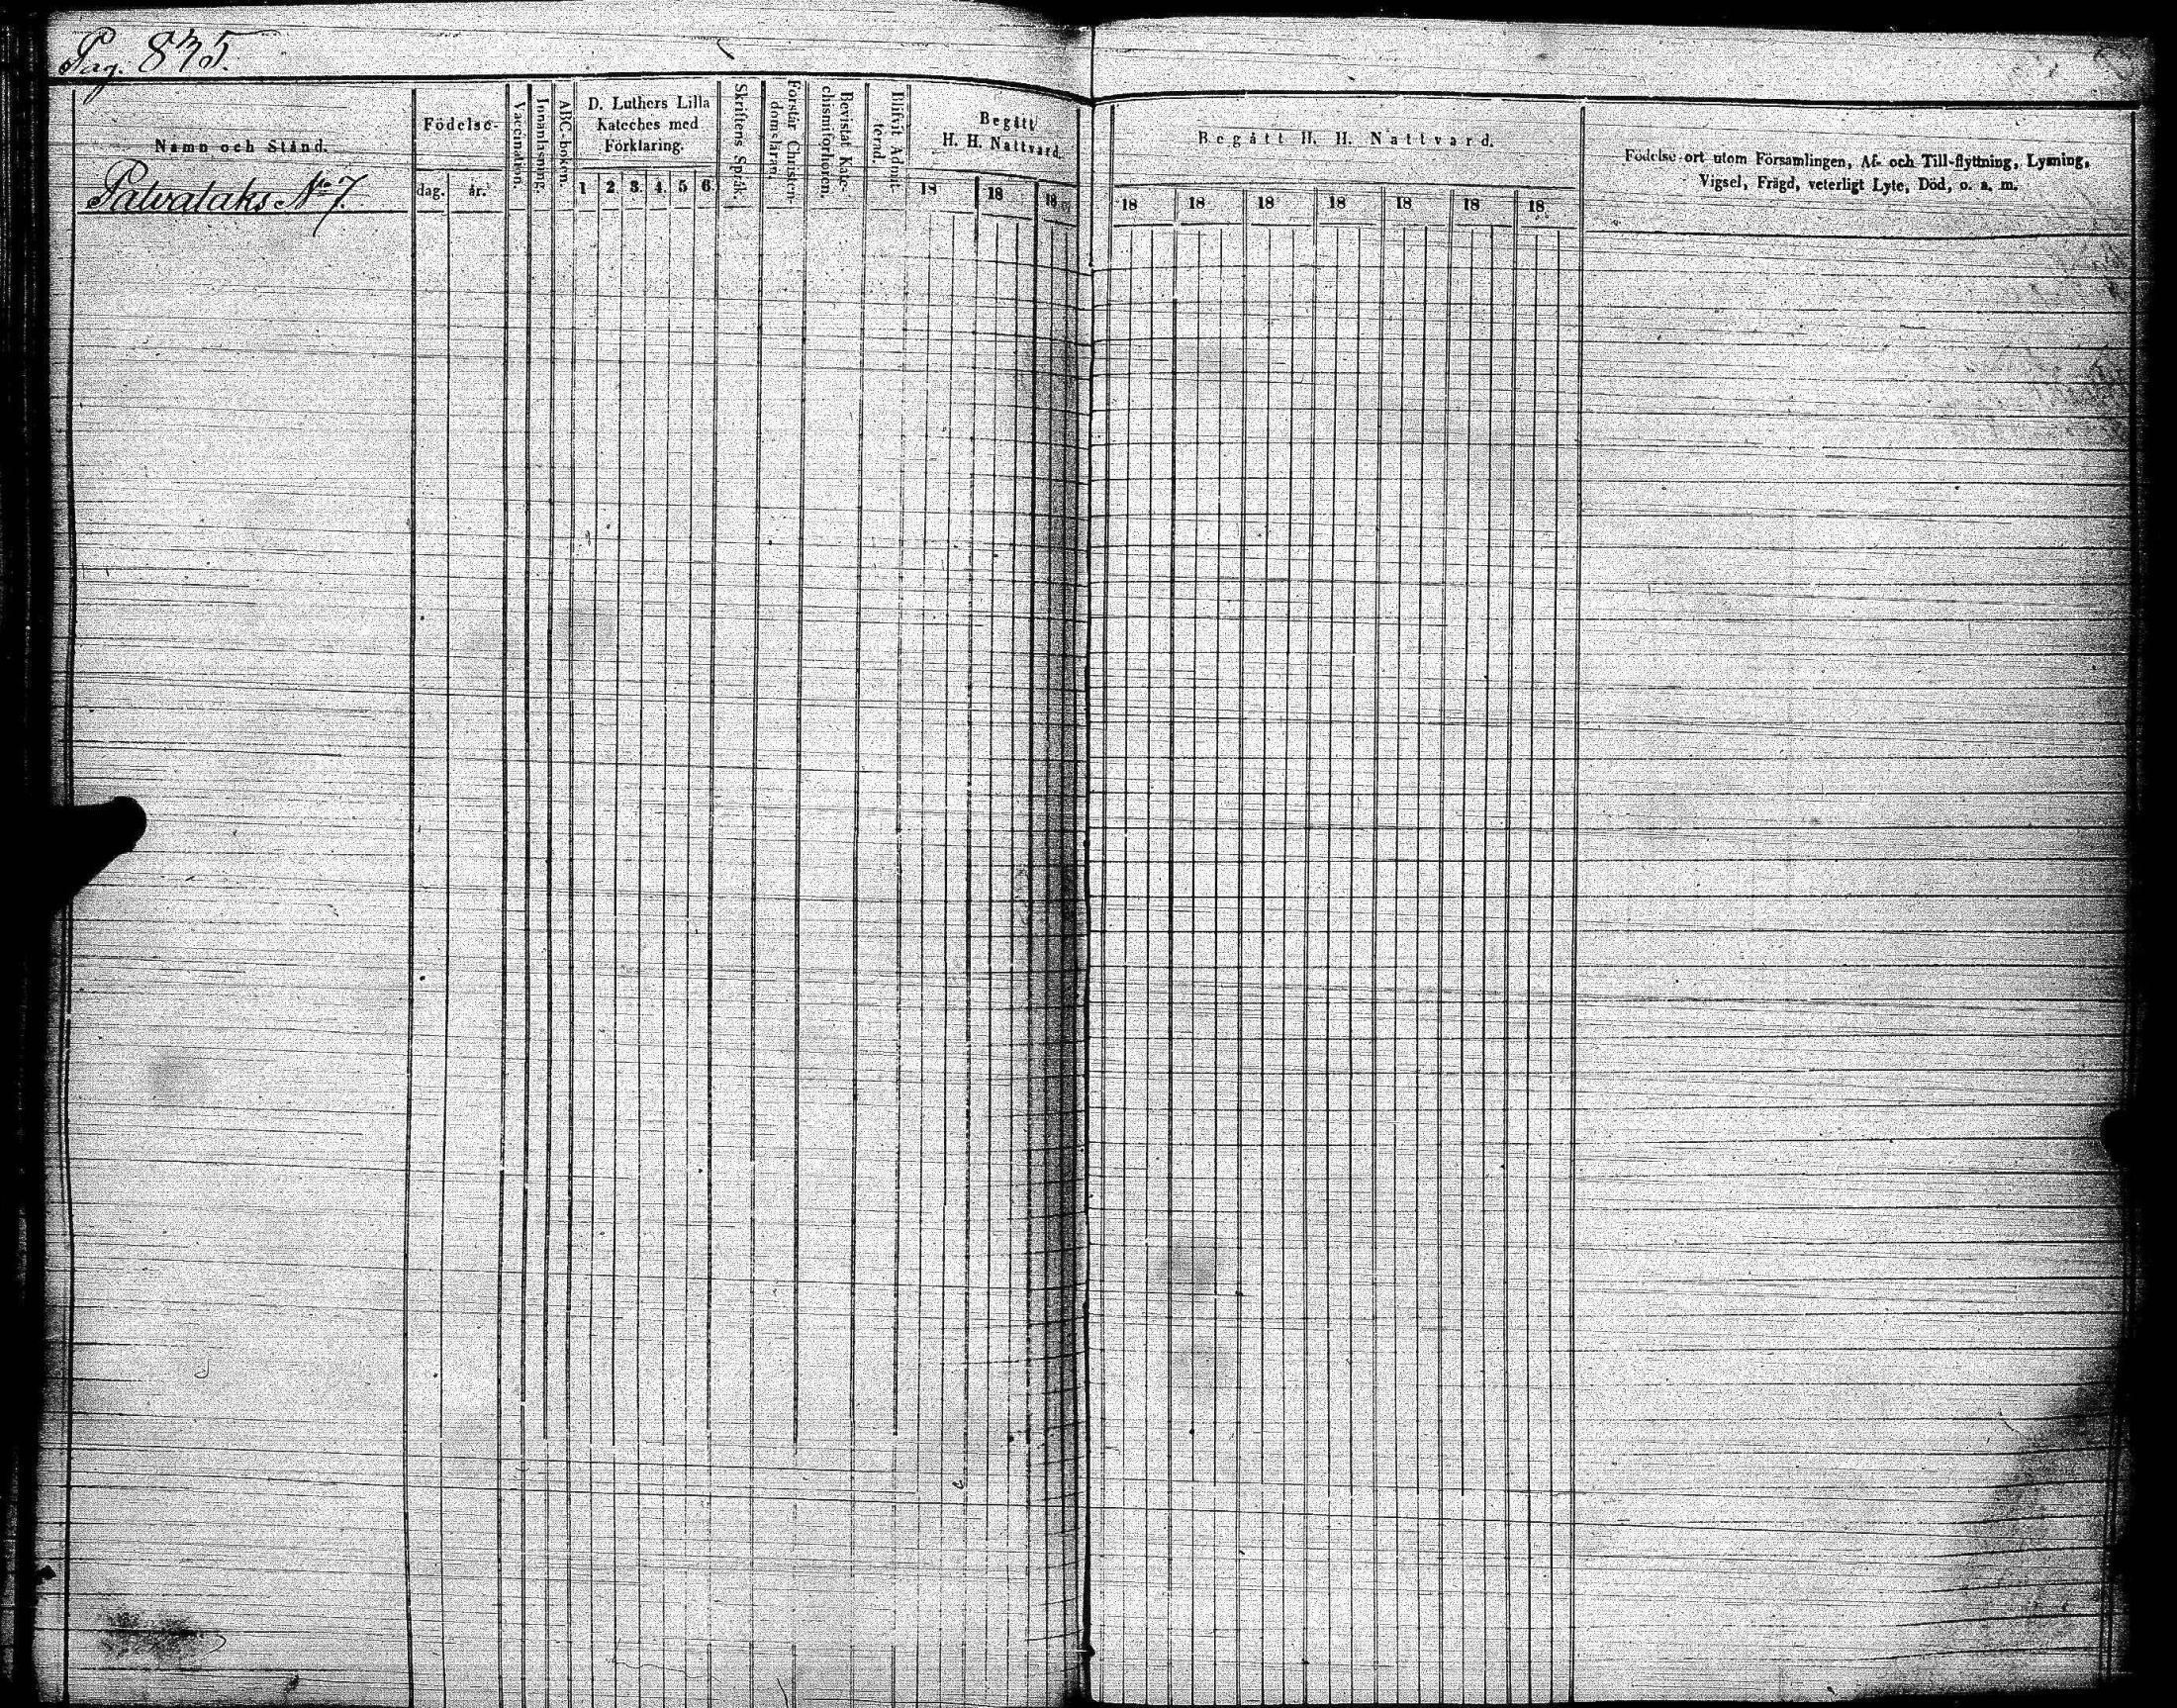 Pag. 835.
Namn och Stånd.
Palvalaks No 7.
Födelse-
dag. år.
Vaccination.
Innanläsning.
ABC-boken.
D. Luthers Lilla
Kateches med
Förklaring.
1 2. 3. 4. 5 6.
Skriftens Språk.
Förstår Christen-
doms-läran.
Bevistat Kate-
chismiförhören.
Blifvit Admit-
terad.
Begått
H. H. Nattvard.
18 18 18
Begått H. H. Nattvard.
18 18 18 18 18 18 18
Födelse-ort utom Församlingen, Af- och Till-flyttning, Lysning,
Vigsel, Frägd, veterligt Lyte, Död, o. s. m.